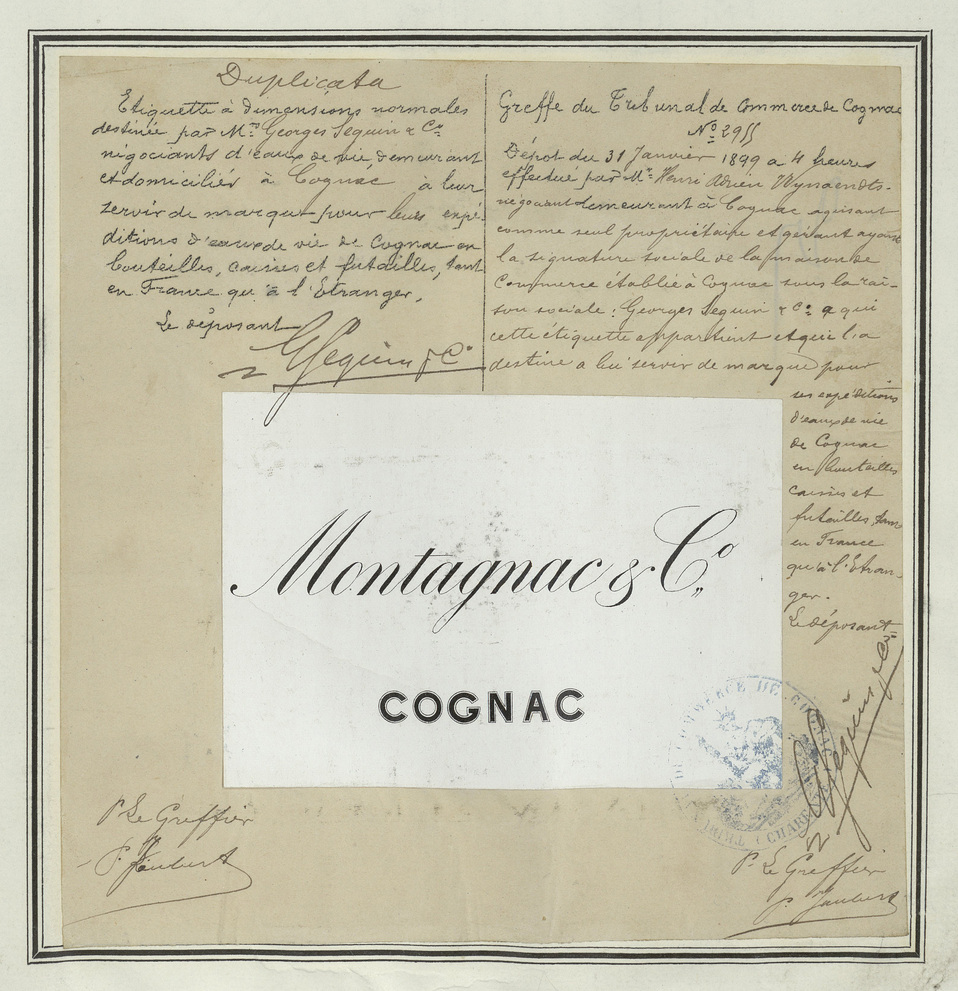 Duplicata
Etiquette à dimensions normales
destinée par Mrs Georges Seguin & Co
négociants d'eaux de vie, demeurant
et domiciliés à Cognac à leur
servir de marque pour leurs expé-
ditions d'eaux de vie de Cognac en
bouteilles, caisses et futailles, tant
en France qu'à l'Etranger.
Le déposant
G Seguin & Co
Greffe du Tribunal de Commerce de Cognac
No 2955
Dépot du 31 Janvier 1899 a 4 heures
effectué par Mr Henri Adrien Wynaendts
négociant demeurant à Cognac agissant
comme seul propriétaire et gérant ayant
la signature sociale de la maison de
Commerce établie à Cognac sous la rai-
son sociale: Georges Seguin & Co a qui
cette étiquette appartient et qui l'a
destine a lui servir de marque pour
ses expéditions
d'eaux de vie
de Cognac
en bouteilles
caisses et
futailles, tant
en France
qu'à l'Etran-
ger.
Le déposant
G Seguin & Co
Montagnac & Co
COGNAC
COMMERCE DE COGNAC
TRIB CHARENTE
P. Le Greffier
P. Jaubert
P. Le Greffier
P. Jaubert